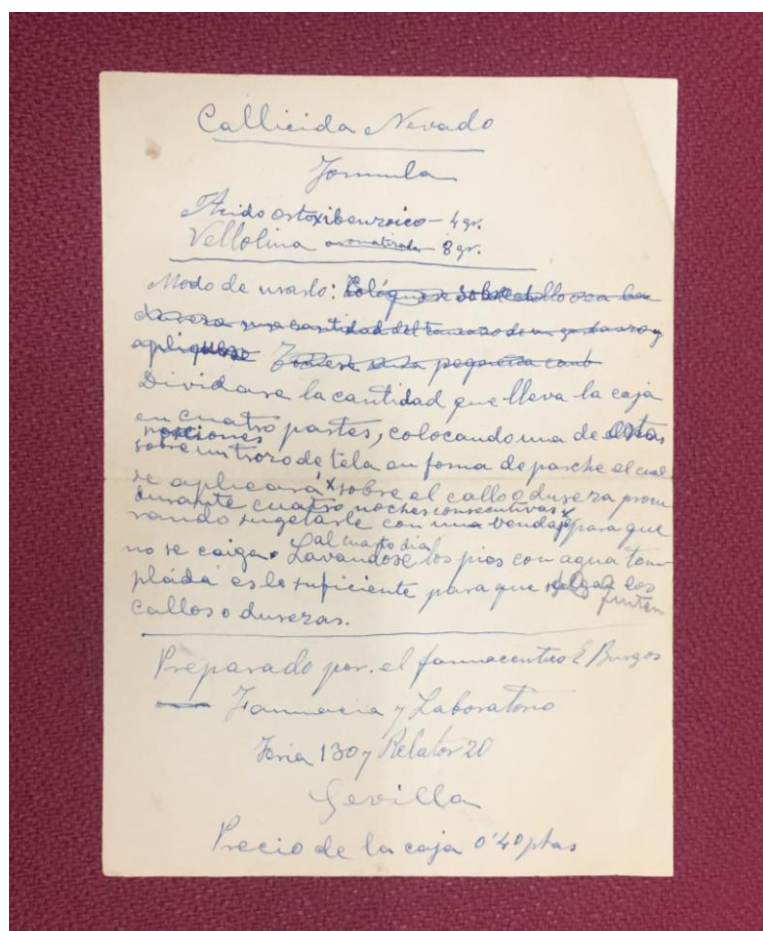 Callicida Nevado
Formula
Acido ortoxibenzoico - 4 gr.
Vellolina aromatizada - 8 gr.
Modo de usarlo: Colóquese sobre el callo o en la
dureza una cantidad del tamaño de un garbanzo y
apliquese una pequeña cant
Dividase la cantidad que lleva la caja
en cuatro partes, colocando una de estas
porciones
sobre un trozo de tela en forma de parche el cual
se aplicará x sobre el callo o dureza procu
durante cuatro noches consecutivas x
rando sugetarle con una vendaje para que
no se caiga. Lavandose los pies con agua tem
al cuarto dia
pláda es lo suficiente para que salgan los
callos o durezas.
Preparado por el farmaceutico E Burgos
Farmacia y Laboratorio
Feria 130 y Relator 20
Sevilla
Precio de la caja 0'40 ptas